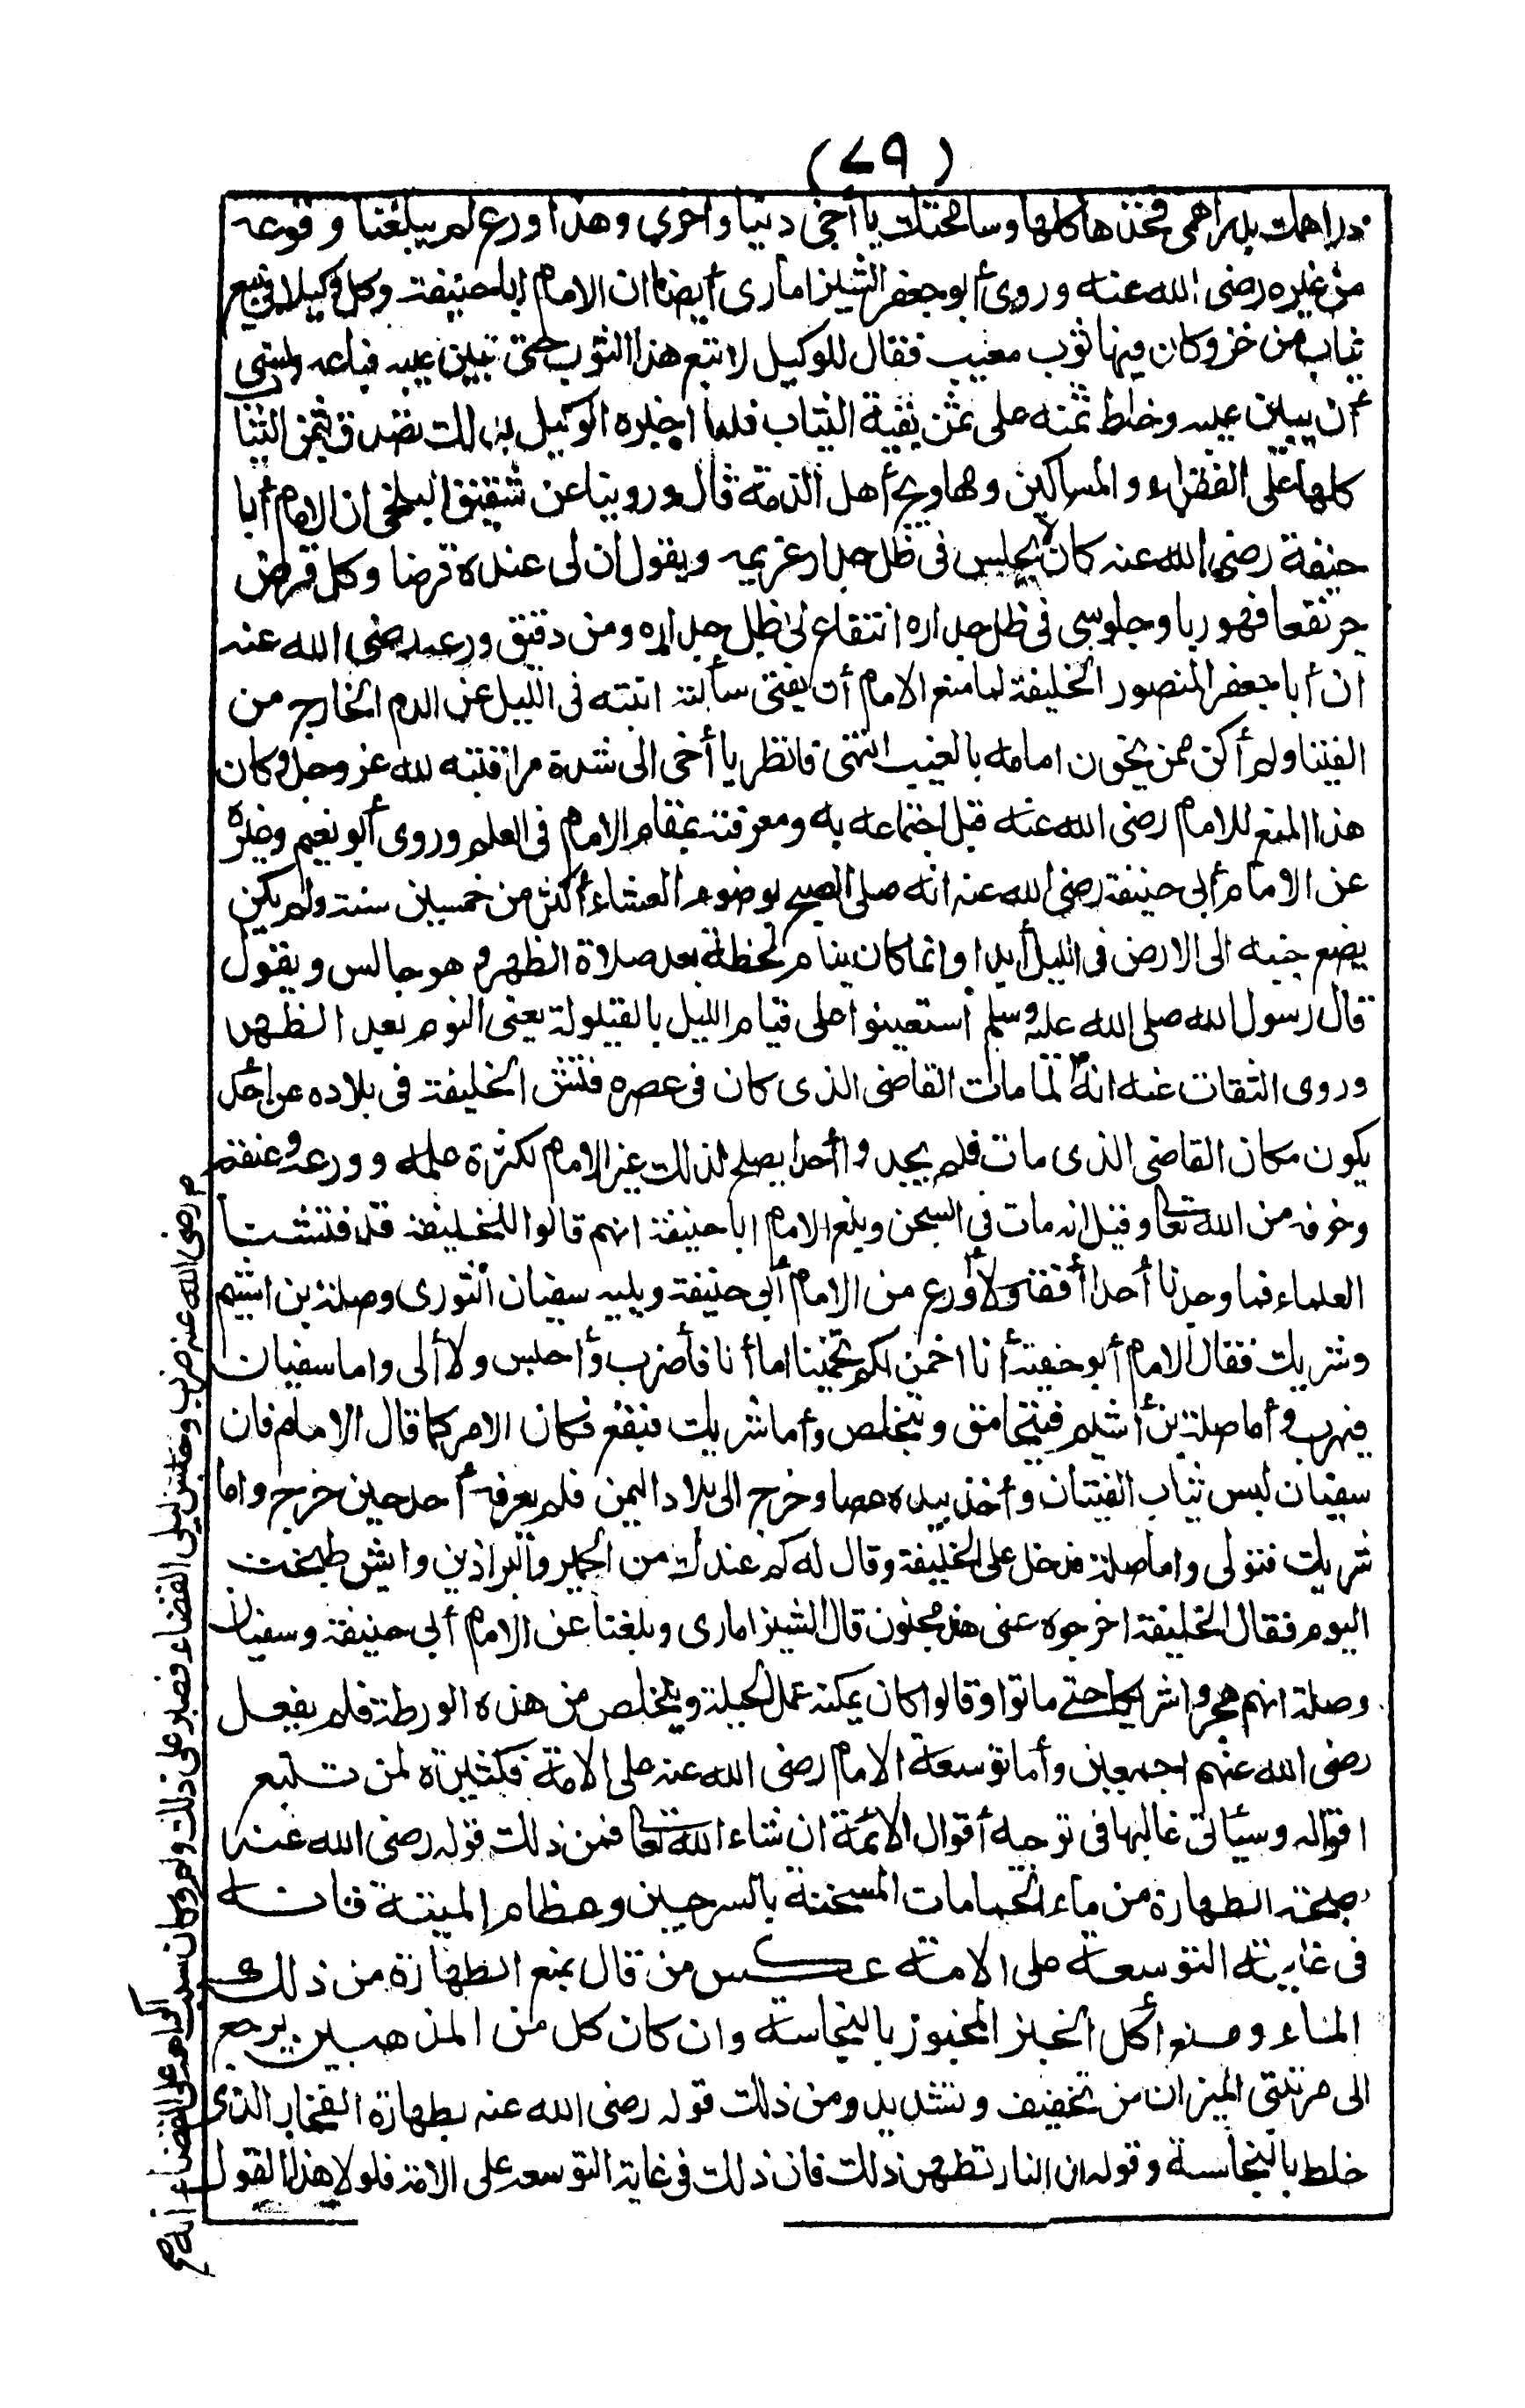 (٧٩)
دراهمك بدراهمى فخذها كلها وسامحتك يا أخى دنيا واخرى وهذا ورع لم يبلغنا وقوعه
من غيره رضى الله عنه وروى أبو جعفر الشيزامارى أيضا ان الامام اباحنيفة وكل وكيلا فى بيع
ثياب من خز وكان فيها ثوب معيب فقال للوكيل لا تبع هذا الثوب حتى تبين عيبه فباعه ونسى
أن يبين عيبه وخلط ثمنه على ثمن بقية الثياب فلما اخبره الوكيل بذلك تصدق بثمن الثياب
كلها على الفقراء والمساكين ومحاويج أهل الذمة قال وروينا عن شقيق البلخى ان الامام أبا
حنيفة رضى الله عنه كان لا يجلس فى ظل جدار غريمه ويقول ان لى عنده قرضا وكل قرض
جر نفعا فهو ربا وجلوسى فى ظل جداره انتفاع لى بظل جداره ومن دقيق ورعه رضى الله عنه
ان أبا جعفر المنصور الخليفة لما منع الامام أن يفتى سألته ابنته فى الليل عن الدم الخارج من
الفتيا ولم أكن ممن يخون امامه بالغيب انتهى فانظر يا أخى الى شدة مراقبته لله عز وجل وكان
هذا المنع للامام رضى الله عنه قبل اجتماعه به ومعرفته بمقام الامام فى العلم وروى أبو نعيم وغيره
عن الامام أبى حنيفة رضى الله عنه انه صلى الصبح بوضوء العشاء أكثر من خمسين سنة ولم يكن
يضع جنبه الى الارض فى الليل أبدا وانما كان ينام لحظة بعد صلاة الظهر وهو جالس ويقول
قال رسول الله صلى الله عليه وسلم استعينوا على قيام الليل بالقيلولة يعنى النوم بعد الظهر
وروى الثقات عنه انه م لما مات القاضى الذى كان فى عصره فتش الخليفة فى بلاده عن احد
يكون مكان القاضى الذى مات فلم يجدوا أحدا يصلح لذلك غير الامام لكثرة علمه وورعه وعفته
وخوفه من الله تعالى وقيل انه مات فى السجن وبلغ الامام اباحنيفة انهم قالوا للخليفة قد فتشنا
العلماء فما وجدنا أحدا أفقه ولا أورع من الامام أبى حنيفة ويليه سفيان الثورى وصلة بن اشيم
وشريك فقال الامام أبو حنيفة أنا اخمن لكم تخمينا اما أنا فأضرب وأحبس ولا ألى واما سفيان
فيهرب وأما صلة بن أشيم فيتحامق ويتخلص وأما شريك فيقع فكان الامر كما قال الامام فان
سفيان لبس ثياب الفتيان وأخذ بيده عصا وخرج الى بلاد اليمن فلم يعرفه أحد حين خرج واما
شريك فتولى واما صلة فدخل على الخليفة وقال له كم عندك من الحمير والبراذين وايش طبخت
اليوم فقال الخليفة اخرجوه عنى هذا مجنون قال الشيزامارى وبلغنا عن الامام أبى حنيفة وسفيان
وصلة انهم هجروا شريكا حتى ماتوا وقالوا كان يمكنه عمل الحيلة ويتخلص من هذه الورطة فلم يفعل
رضى الله عنهم اجمعين وأما توسعة الامام رضى الله عنه على الامة فكثيرة لمن تتبع
اقواله وسيأتى غالبها فى توجيه أقوال الأئمة ان شاء الله تعالى فمن ذلك قوله رضى الله عنه
بصحة الطهارة من ماء الحمامات المسخنة بالسرجين وعظام الميتة فانه
فى غاية التوسعة على الامة عكس من قال بمنع الطهارة من ذلك
الماء ومنع أكل الخبز المخبوز بالنجاسة وان كان كل من المذهبين يرجع
الى مرتبتى الميزان من تخفيف وتشديد ومن ذلك قوله رضى الله عنه بطهارة الفخار الذى
خلط بالنجاسة وقوله ان النار تطهر ذلك فان ذلك فى غاية التوسعة على الامة فلولا هذا القول
م رضى الله عنه ضرب وحبس ليلى القضاء فصبر على ذلك ولم وكان سبب اكراهه على القضاء انه